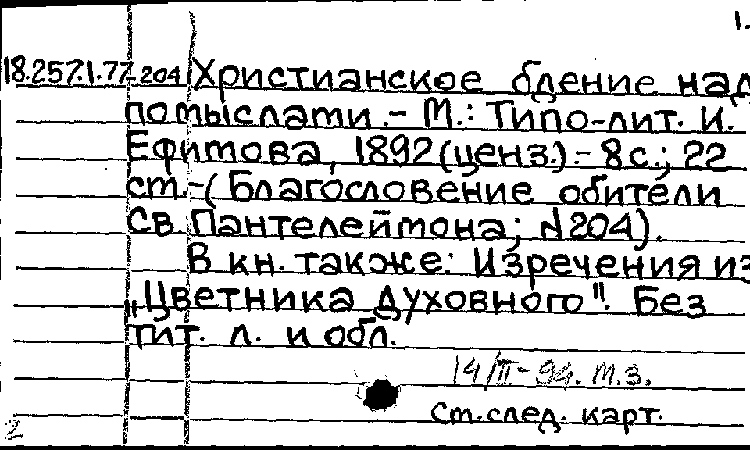 1.
18.257.1.77-204 Христианское бдение над
помыслами.- М.: Типо-лит. И.
Ефимова, 1892 (ценз.).- 8 с.; 22
см.-(Благословение обители
Св. Пантелеймона; №204).
В кн. также: Изречения из
„Цветника духовного". Без
тит. л. и обл.
14/III-94. М.З.
См.след. карт.
2